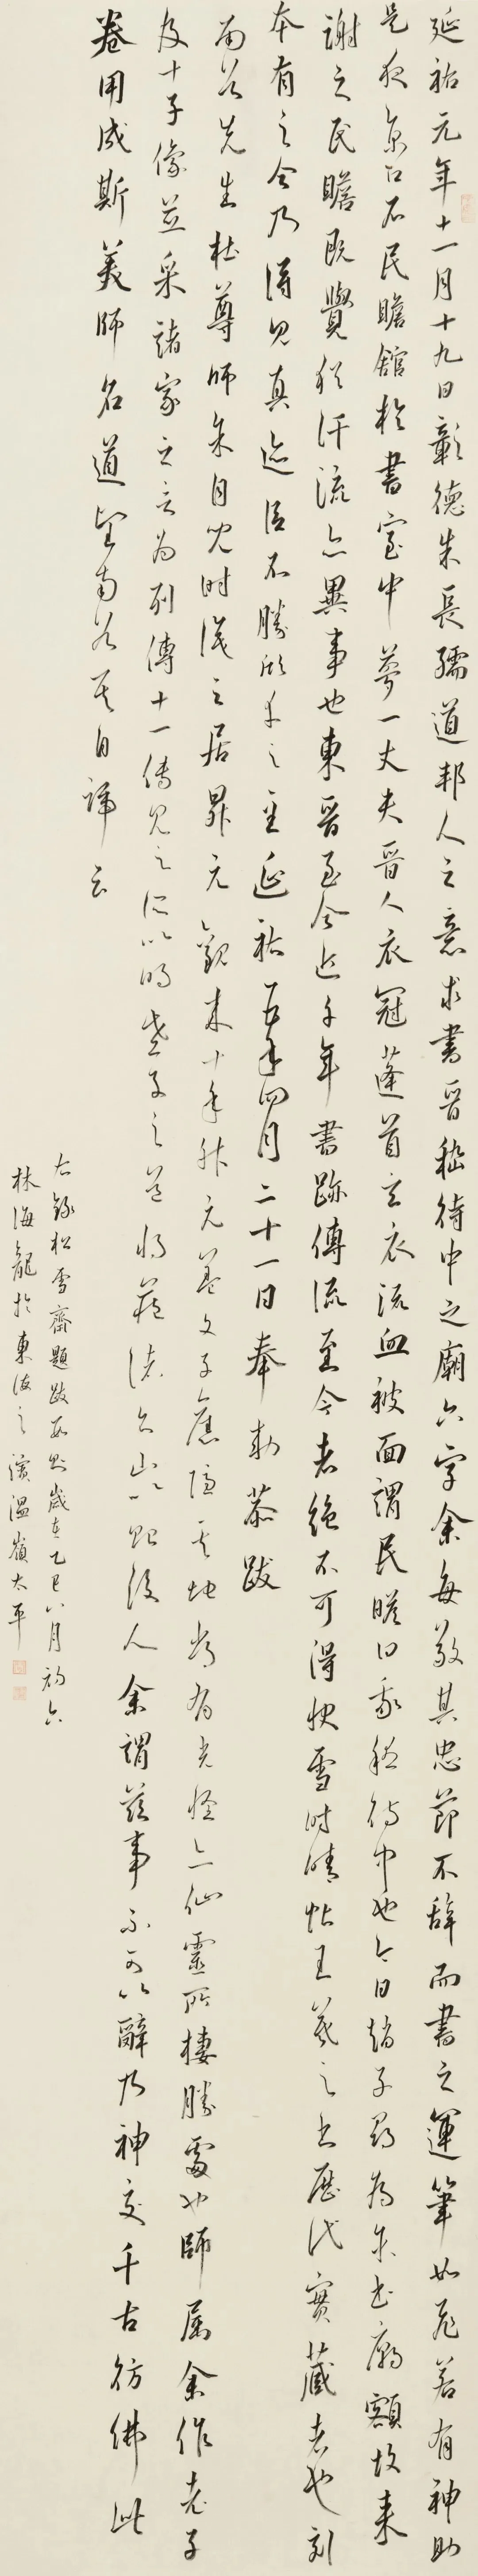 延祐元年十一月十九日彰德朱長孺道邦人之意求書晉嵇待中之廟六字余每敬其忠節不辞而書之運筆如飛若有神助
是夜京口石民瞻館於書室中夢一丈夫晉人衣冠蓬首玄衣流血被面謂民瞻曰我嵇侍中也今日趙子昂為余書廟額故來
謝之民瞻既覺猶汗流亦異事也東晉至今近千年書跡傳流至今者絕不可得快雪時晴帖王羲之書歷代寶藏者也刻
本有之今乃得見真跡臣不勝欣幸之至延祐五年四月二十一日奉勅恭跋
南谷先生杜尊師余自兒時識之居昇元觀末十年昇元蓋文子舊隱其地尚有光怪亦仙靈所棲勝處也師屬余作老子
及十子像并采諸家之言為列傳十一傳見之所以明老子之道將藏諸名山以貽後人余謂茲事不可以辭乃神交千古彷彿此
卷用成斯美師名道堅南谷其自號云
右錄松雪齋題跋数則歲在乙巳八月初六
林海龍於東海之濱溫嶺太平